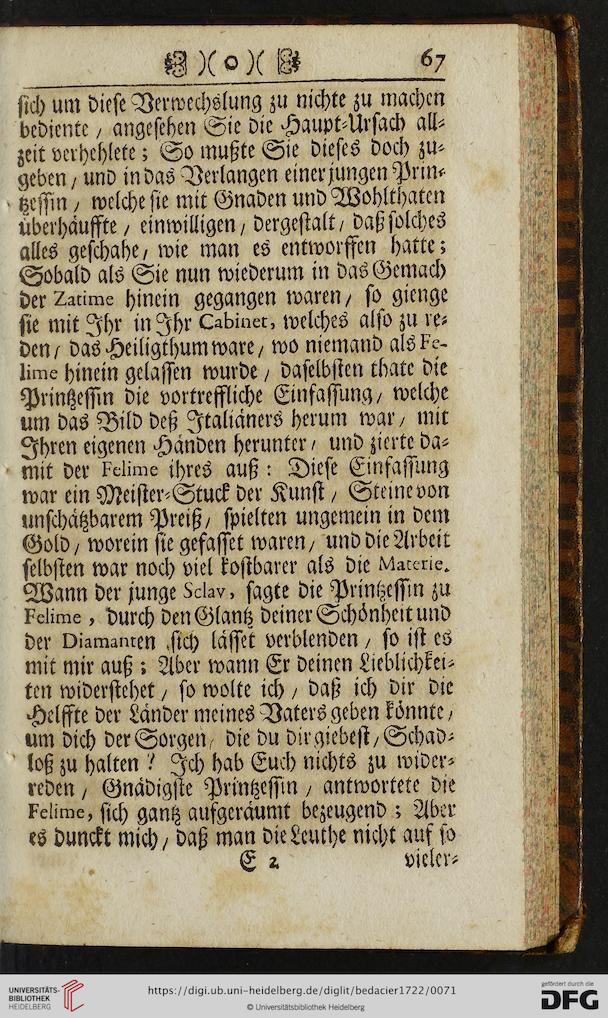 )( o )( 67
sich um diese Verwechslung zu nichte zu machen
bediente / angesehen Sie die Haupt-Ursach all-
zeit verhehlete ; So mußte Sie dieses doch zu-
geben / und in das Verlangen einer jungen Prin-
tzessin / welche sie mit Gnaden und Wohlthaten
überhäuffte / einwilligen / dergestalt / daß solches
alles geschahe / wie man es entworffen hatte ;
Sobald als Sie nun wiederum in das Gemach
der Zatime hinein gegangen waren / so gienge
sie mit Ihr in Ihr Cabinet, welches also zu re-
den / das Heiligthum ware / wo niemand als Fe-
lime hinein gelassen wurde / daselbsten thate die
Printzessin die vortreffliche Einfassung / welche
um das Bild deß Italiäners herum war / mit
Ihren eigenen Händen herunter / und zierte da-
mit der Felime ihres auß : Diese Einfassung
war ein Meister-Stuck der Kunst / Steine von
unschätzbarem Preiß / spielten ungemein in dem
Gold / worein sie gefasset waren / und die Arbeit
selbsten war noch viel kostbarer als die Materie.
Wann der junge Sclav, sagte die Printzessin zu
Felime , durch den Glantz deiner Schönheit und
der Diamanten sich lässet verblenden / so ist es
mit mir auß ; Aber wann Er deinen Lieblichkei-
ten widerstehet / so wolte ich / daß ich dir die
Helffte der Länder meines Vaters geben könnte /
um dich der Sorgen / die du dir giebest / Schad-
loß zu halten ? Ich hab Euch nichts zu wider-
reden / Gnädigste Printzessin / antwortete die
Felime, sich gantz aufgeräumt bezeugend ; Aber
es dunckt mich / daß man die Leuthe nicht auf so
E 2 vieler-
UNIVERSITÄTS-
BIBLIOTHEK
HEIDELBERG
https://digi.ub.uni-heidelberg.de/diglit/bedacier1722/0071
© Universitätsbibliothek Heidelberg
gefördert durch die
DFG